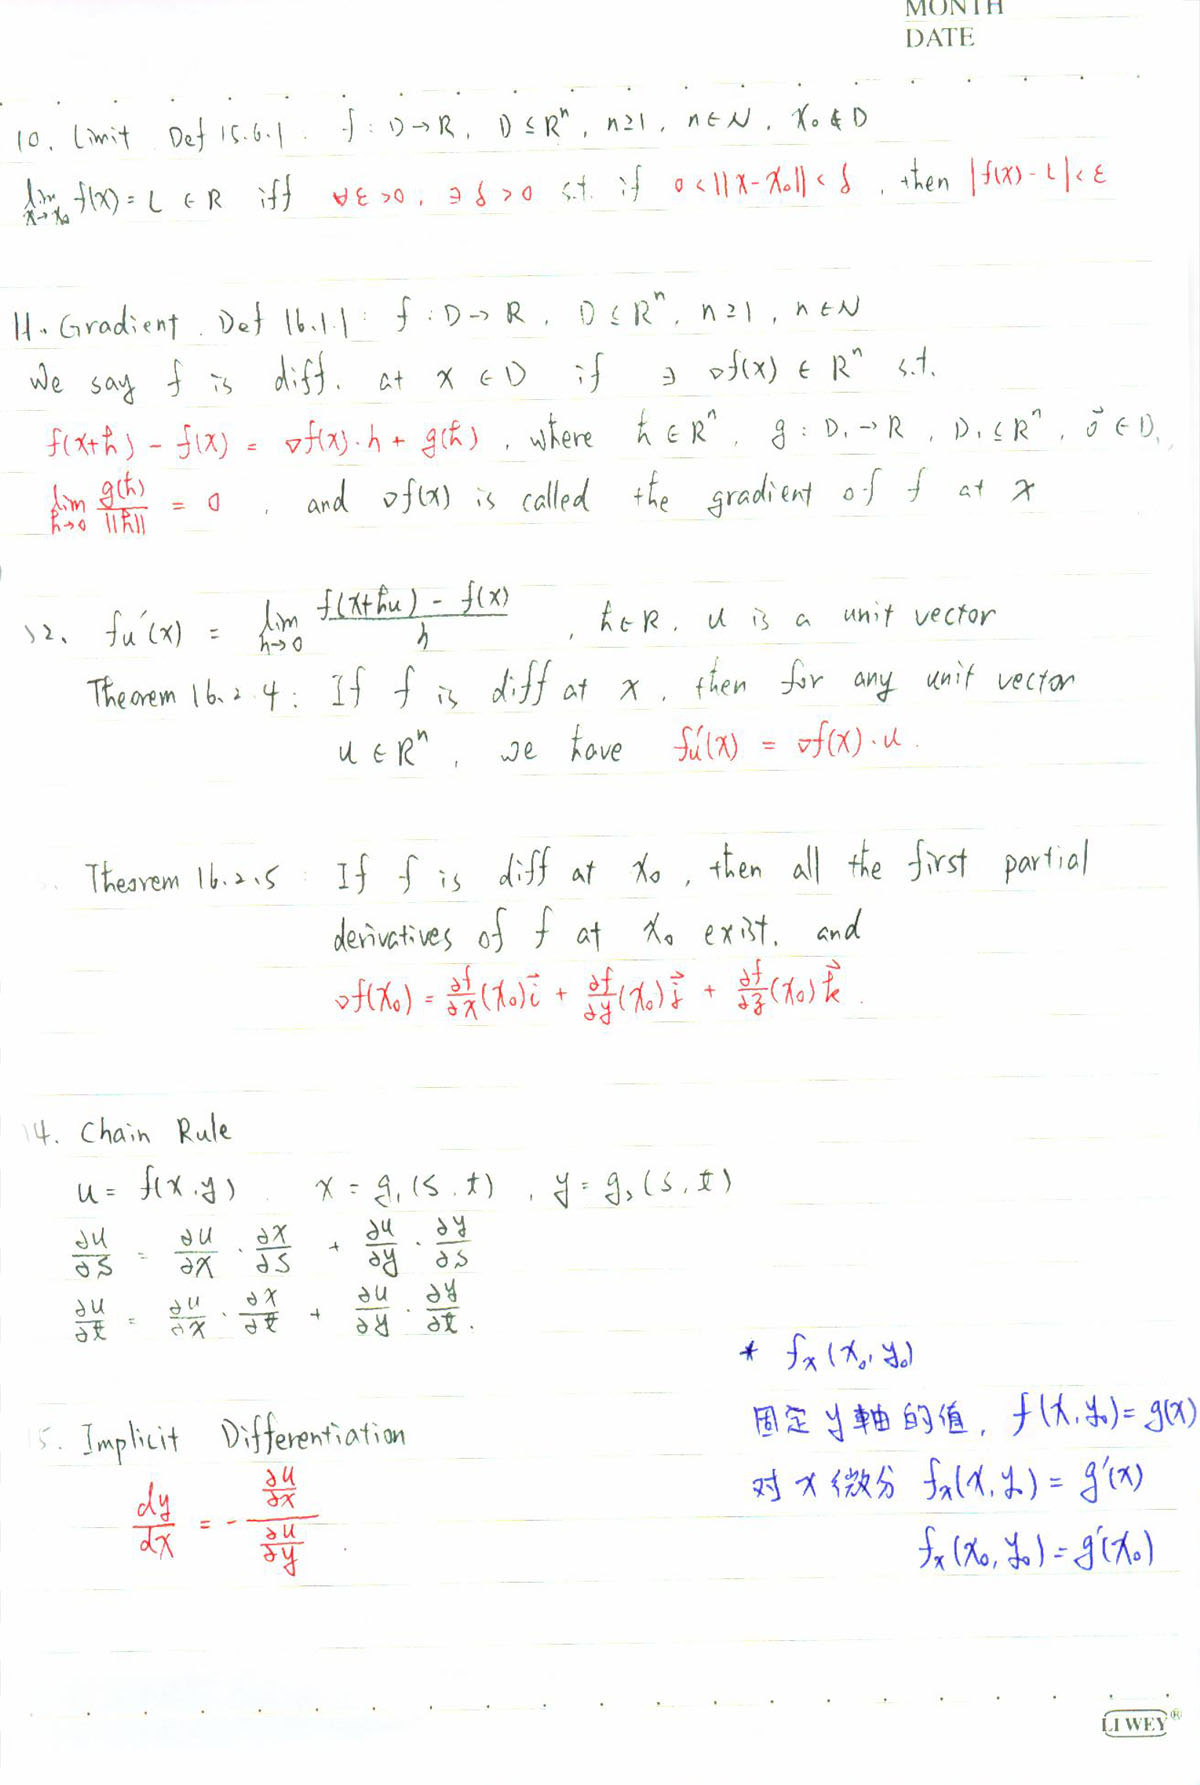 MONTH
DATE
10. Limit Def 15.6.1. f : D → R, D ⊆ Rⁿ, n≥1, n∈N, x₀ ∉ D
lim x→x₀ f(x) = L ∈ R iff ∀ε>0, ∃δ>0 s.t. if 0<||x-x₀||<δ, then |f(x)-L|<ε
11. Gradient. Def 16.1.1 : f : D → R, D ⊆ Rⁿ, n≥1, n∈N
We say f is diff. at x ∈ D if ∃ ▽f(x) ∈ Rⁿ s.t.
f(x+h) - f(x) = ▽f(x)·h + g(h), where h ∈ Rⁿ, g : D₁ → R, D₁ ⊆ Rⁿ, 0⃗ ∈ D₁,
lim h→0 g(h)/||h|| = 0, and ▽f(x) is called the gradient of f at x
12. fu'(x) = lim h→0 (f(x+hu) - f(x))/h, h∈R. u is a unit vector
Theorem 16.2.4 : If f is diff at x, then for any unit vector
u ∈ Rⁿ, we have fu'(x) = ▽f(x)·u.
Theorem 16.2.5 : If f is diff at x₀, then all the first partial
derivatives of f at x₀ exist. and
▽f(x₀) = ∂f/∂x (x₀) i⃗ + ∂f/∂y (x₀) j⃗ + ∂f/∂z (x₀) k⃗.
14. Chain Rule
u = f(x,y). x = g₁(s,t), y = g₂(s,t)
∂u/∂s = ∂u/∂x · ∂x/∂s + ∂u/∂y · ∂y/∂s
∂u/∂t = ∂u/∂x · ∂x/∂t + ∂u/∂y · ∂y/∂t.
15. Implicit Differentiation
dy/dx = - (∂u/∂x)/(∂u/∂y).
* fx(x₀,y₀)
固定y軸的值, f(x,y₀)=g(x)
对x微分 fx(x,y₀)=g'(x)
fx(x₀,y₀)=g'(x₀)
LI WEY®